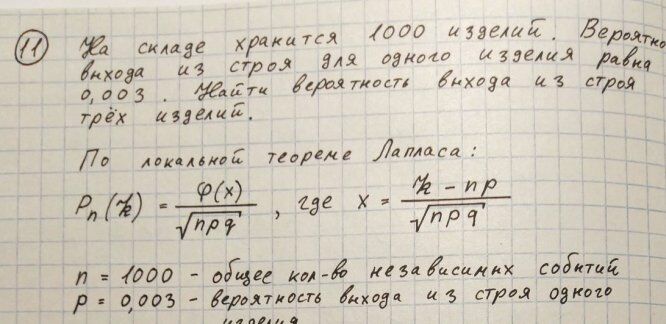 11 На складе хранится 1000 изделий. Вероятно
выхода из строя для одного изделия равна
0,003. Найти вероятность выхода из строя
трёх изделий.
По локальной теореме Лапласа:
Pn(k) = φ(x) / √npq , где x = k - np / √npq
n = 1000 - общее кол-во независимых событий
p = 0,003 - вероятность выхода из строя одного
изделия